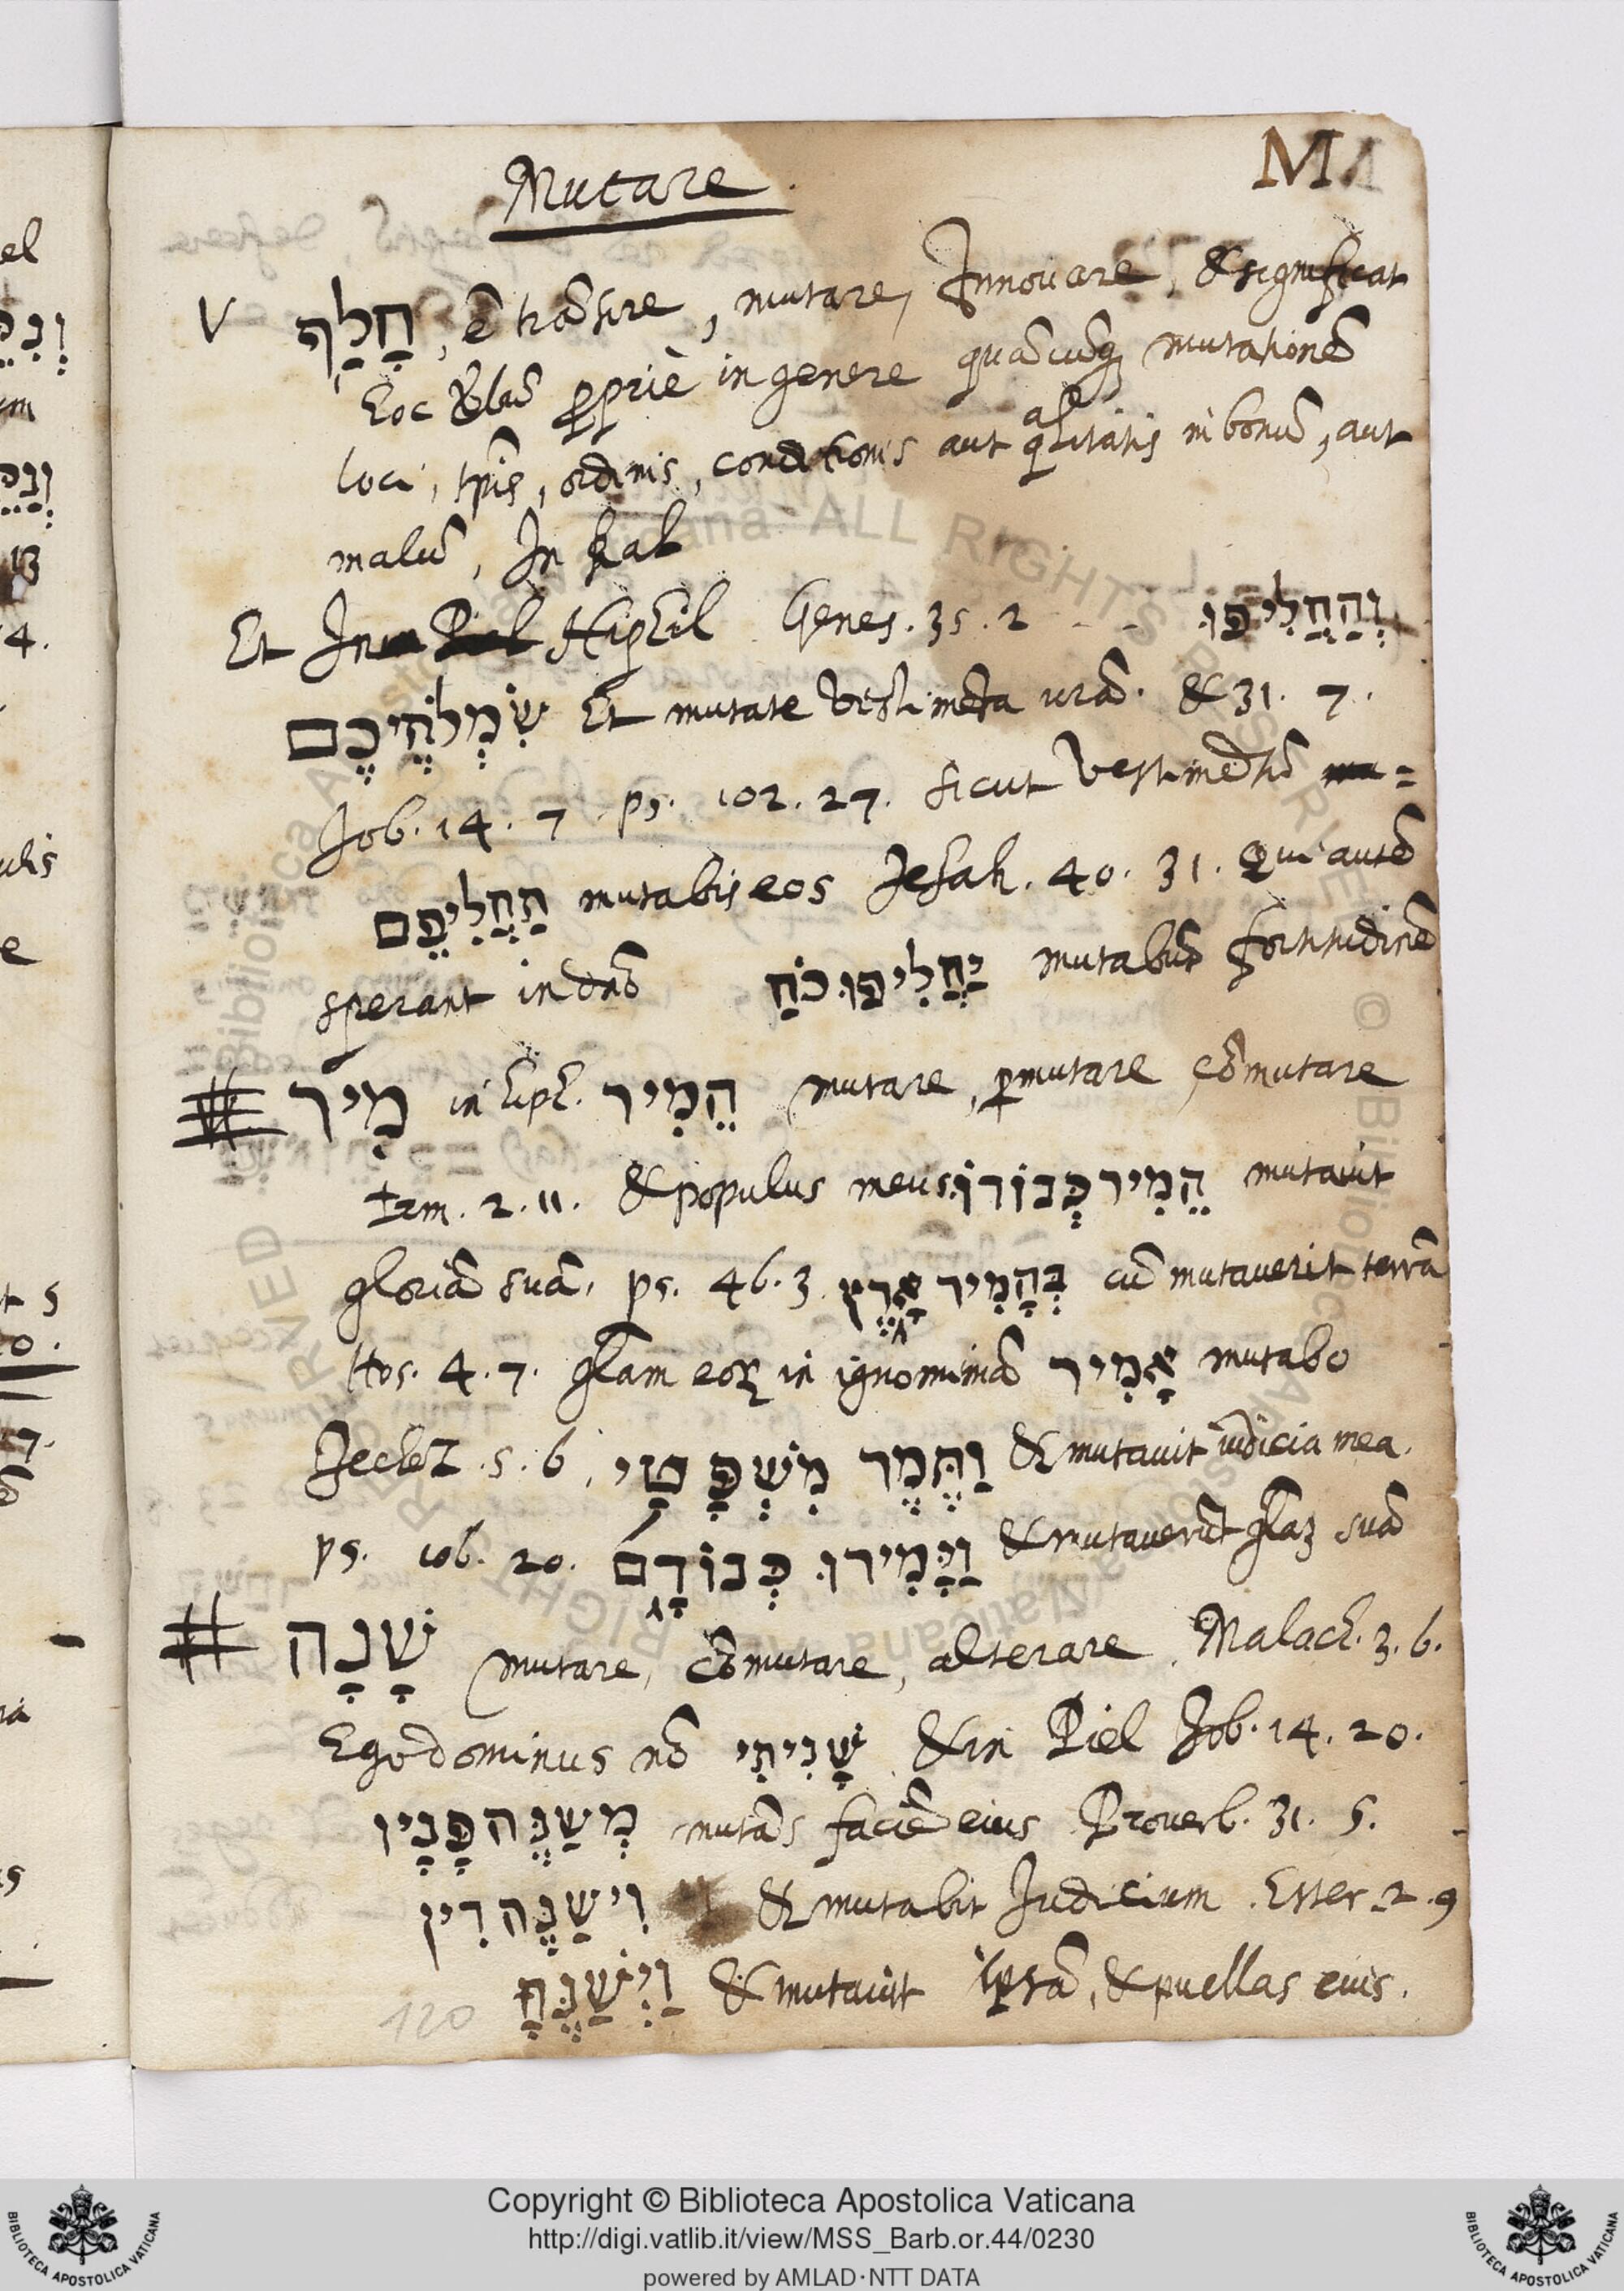 MA
Mutare.
V חָלַף, ē trãsire, mutare, Innouare, & significat
hoc verbũ propriè in genere quãcũq mutationẽ
loci, tp̃is, ordinis, conditionis aut qualitatis in bonũ, aut
malũ, In kal
Et In Hiphil Genes. 35. 2 - - וְהַחֲלִיפוּ
שִׂמְלֹתֵיכֶם Et mutate vestimẽta vrã. & 31. 7.
Job. 14. 7 ps. 102. 27. sicut vestimẽtũ =
תַּחֲלִיפֵם mutabis eos Jesah. 40. 31. Qui autẽ
sperant in dnõ יַחֲלִיפוּ כֹחַ mutabũt fortitudinẽ
# מִיר in hiph. הֵמִיר mutare, permutare cõmutare
Irm. 2. 11. & populus meus הֵמִיר כְּבוֹדוֹ mutauit
gloriã suã, ps. 46. 3. בְּהָמִיר אָרֶץ cũ mutauerit terrã
Hos. 4. 7. glam eoꝝ in ignominiã אָמִיר mutabo
Jechez. 5. 6. וַתֶּמֶר מִשְׁפָּטַי & mutauit iudicia mea.
ps. 106. 20. וַיָּמִירוּ כְּבוֹדָם & mutauerũt glaz suã
# שָׁנָה mutare, cõmutare, alterare. Malach. 3. 6.
Ego dominus nõ שָׁנִיתִי & in Piel Job. 14. 20.
מְשַׁנֶּה פָנָיו mutãs faciẽ eius Prouerb. 31. 5.
וִישַׁנֶּה דִין & mutabit Judicium. Ester. 2. 9
וַיְשַׁנֶּהָ & mutauit ipsã, & puellas eius.
120
Copyright © Biblioteca Apostolica Vaticana
http://digi.vatlib.it/view/MSS_Barb.or.44/0230
powered by AMLAD·NTT DATA
BIBLIOTECA APOSTOLICA VATICANA
BIBLIOTECA APOSTOLICA VATICANA